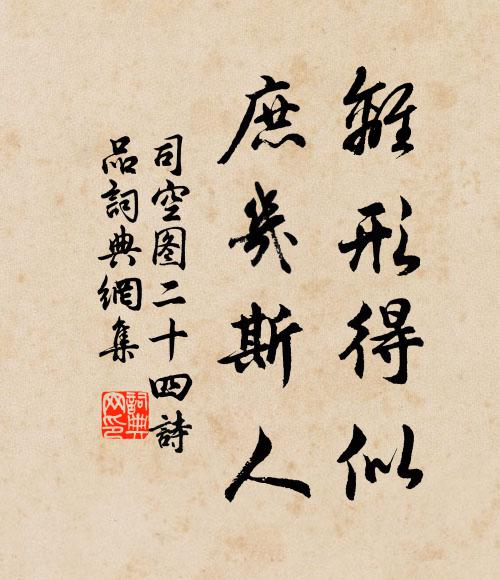 離形得似
庶幾斯人
司空图二十四詩
品詞典網集
詞典
网印